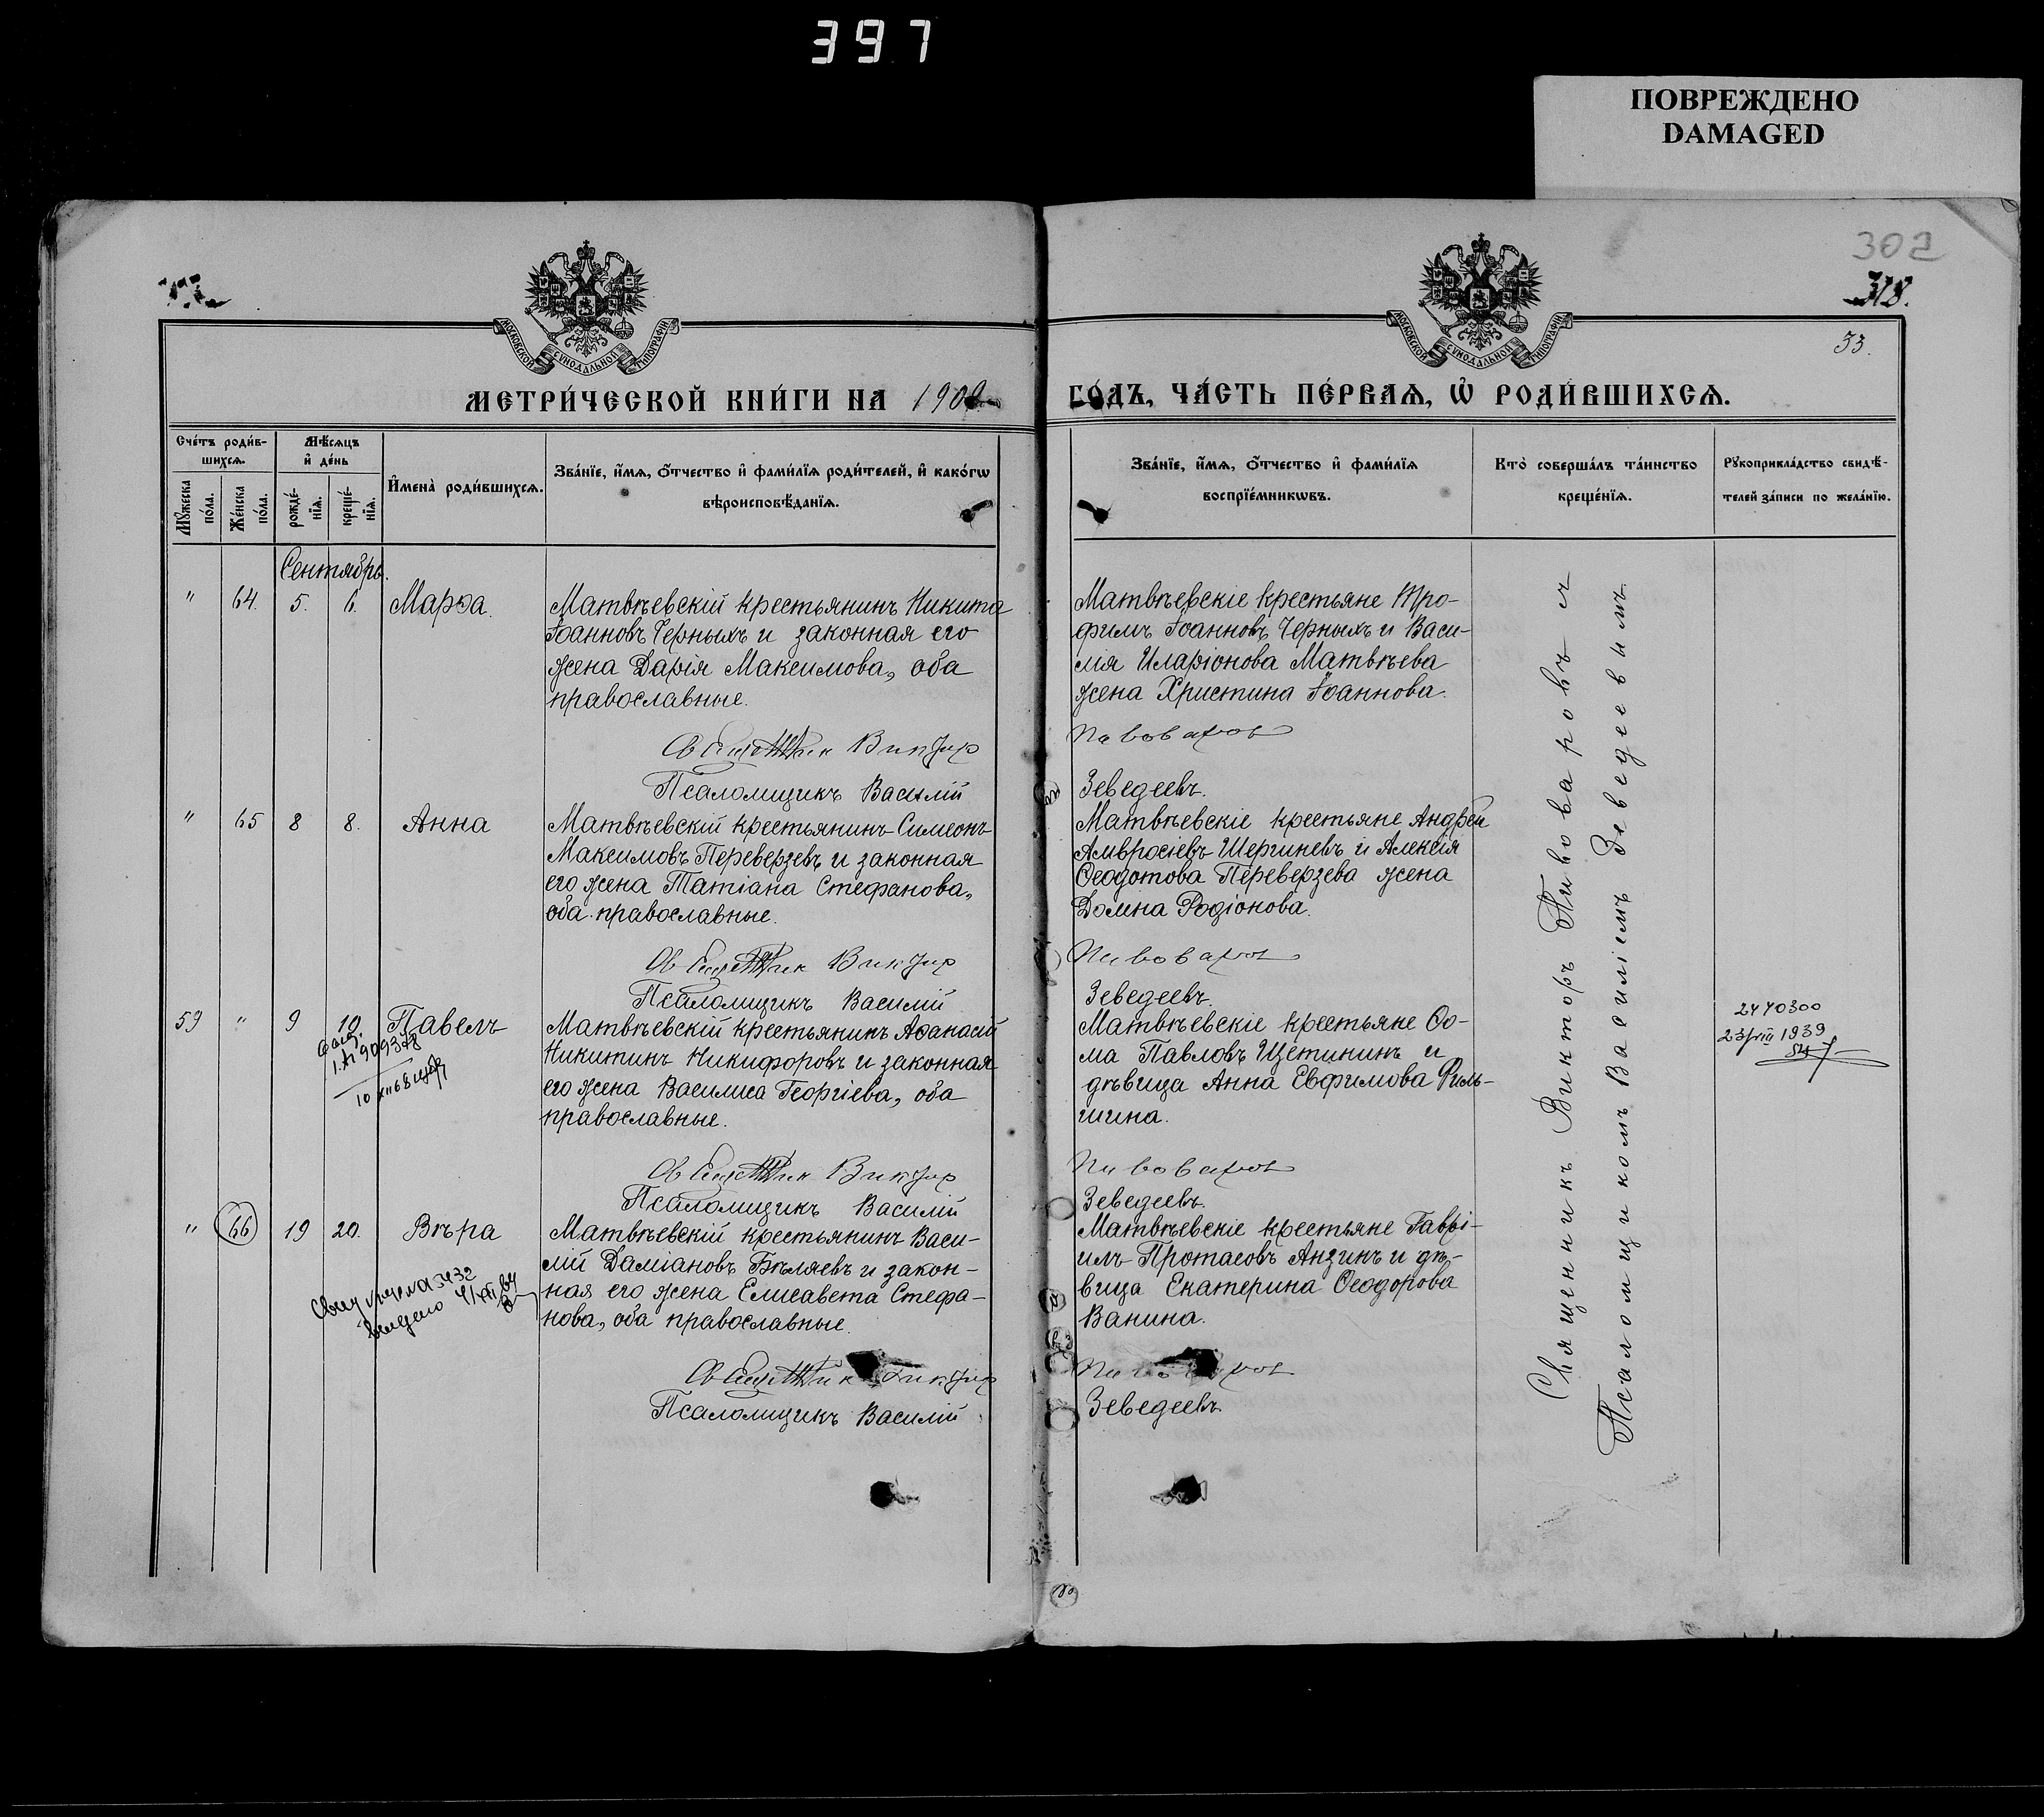 397
ПОВРЕЖДЕНО
DAMAGED
302
318.
33.
МОСКОВСКОЙ СѴНОДАЛЬНОЙ ТИПОГРАФІИ
МОСКОВСКОЙ СѴНОДАЛЬНОЙ ТИПОГРАФІИ
МЕТРИ́ЧЕСКОЙ КНИ́ГИ НА 190
ГО́ДЪ, ЧА́СТЬ ПЕ́РВАѦ, Ѡ҆ РОДИ́ВШИХСѦ.
Сче́тъ роди́в-
шихсѧ.
Мꙋ́жеска по́ла.
Же́нска по́ла.
Мѣ́сѧцъ
и҆ де́нь
рожде́-
нїѧ.
креще́-
нїѧ.
И҆мена̀ роди́вшихсѧ.
Зва́нїе, и҆́мѧ, ѻ҆́тчество и҆ фами́лїѧ роди́телей, и҆ како́гѡ
вѣроисповѣ́данїѧ.
Зва́нїе, и҆́мѧ, ѻ҆́тчество и҆ фами́лїѧ
воспрїе́мникѡвъ.
Кто̀ соверша́лъ та́инство
креще́нїѧ.
Рꙋкоприкла́дство свидѣ́-
телей за́писи по жела́нїю.
Сентябрь.
" 64. 5. 6. Марѳа.
Матвѣевскій крестьянинъ Никита
Іоанновъ Черныхъ и законная его
жена Дарія Максимова, оба
православные.
Священник Виктор
Псаломщикъ Василій
Матвѣевскіе крестьяне Тро-
фимъ Іоанновъ Черныхъ и Васи-
лія Иларіонова Матвѣева
жена Христина Іоаннова.
Пивоваров
Зеведеевъ.
" 65 8 8. Анна
Матвѣевскій крестьянинъ Симеонъ
Максимовъ Переверзевъ и законная
его жена Татіана Стефанова,
оба православные.
Священник Виктор
Псаломщикъ Василій
Матвѣевскіе крестьяне Андрей
Амвросіевъ Шергиневъ и Алексія
Ѳеодотова Переверзева жена
Домна Родіонова.
Пивоваров
Зеведеевъ.
59 " 9 10. Павелъ
Матвѣевскій крестьянинъ Аѳанасій
Никитинъ Никифоровъ и законная
его жена Василиса Георгіева, оба
православные.
Священник Виктор
Псаломщикъ Василій
Матвѣевскіе крестьяне Ѳо-
ма Павловъ Щетининъ и
дѣвица Анна Евфимова Филь-
шина.
Пивоваров
Зеведеевъ.
2440300
23/VIII 1939
" 66 19 20. Вѣра
Матвѣевскій крестьянинъ Васи-
лій Даміановъ Бѣляевъ и закон-
ная его жена Елисавета Стефа-
нова, оба православные.
Священник Виктор
Псаломщикъ Василій
Матвѣевскіе крестьяне Гаврі-
илъ Протасовъ Анзинъ и дѣ-
вица Екатерина Ѳеодорова
Ванина.
Пивоваров
Зеведеевъ
Священникъ Викторъ Пивоваровъ съ
Псаломщикомъ Василіемъ Зеведеевымъ.